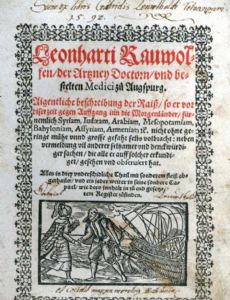 Leonharti Rauwol-
fen, der Artzney Doctorn, vnd be-
stelten Medici zů Augspurg.
Aigentliche beschreibung der Raiß, so er vor
diser zeit gegen Auffgang inn die Morgenländer, für-
nemlich Syriam, Iudæam, Arabiam, Mesopotamiam,
Babyloniam, Assyriam, Armeniam ꝛc. nicht ohne ge-
ringe mühe vnnd grosse gefahr selbs volbracht: neben
vermeldung vil anderer seltzamer vnd denckwürdi-
ger sachen, die alle er auff solcher erkundi-
get, gesehen vnd obseruiert hat.
Alles in drey vnderschidliche Thail mit sonderem fleiß ab-
gethailet, vnd ein jeder weiter in seine sondere Ca-
pitel, wie dero jnnhalt in zů end gesetz-
tem Register zůfinden.